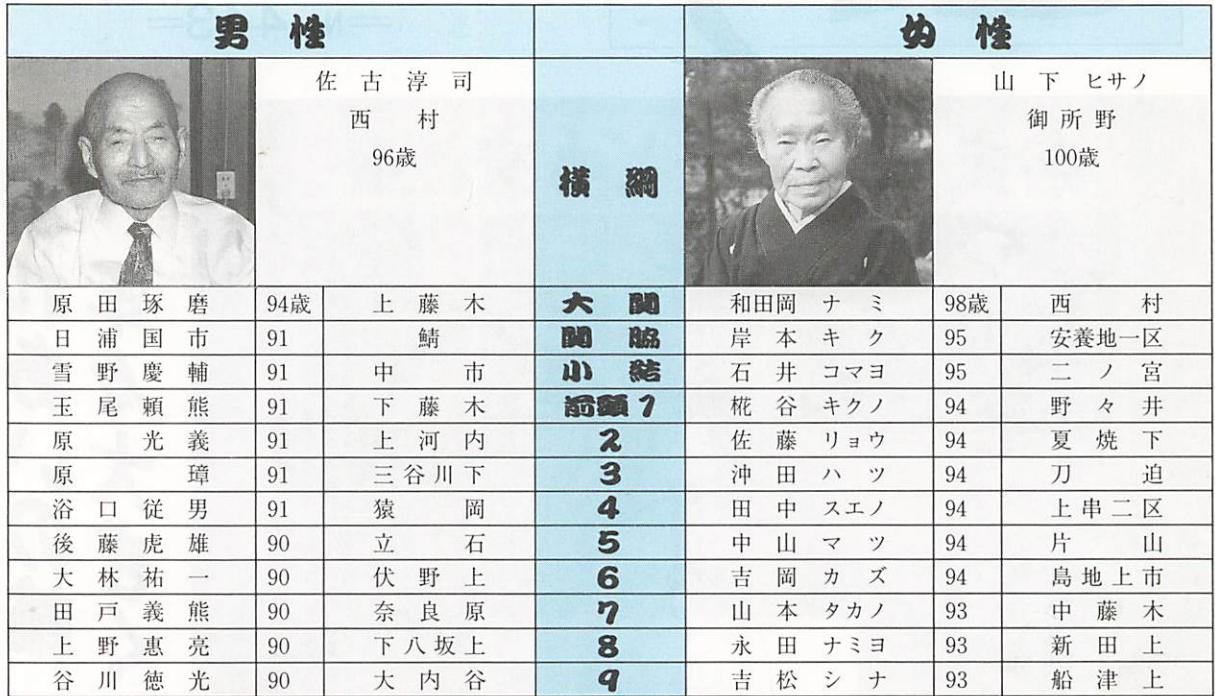 男性 女性
佐古淳司
西村
96歳
横綱
山下ヒサノ
御所野
100歳
原田琢磨 94歳 上藤木 大関 和田岡ナミ 98歳 西村
日浦国市 91 鯖 関脇 岸本キク 95 安養地一区
雪野慶輔 91 中市 小結 石井コマヨ 95 二ノ宮
玉尾頼熊 91 下藤木 前頭1 椛谷キクノ 94 野々井
原光義 91 上河内 2 佐藤リョウ 94 夏焼下
原璋 91 三谷川下 3 沖田ハツ 94 刀迫
浴口従男 91 猿岡 4 田中スエノ 94 上串二区
後藤虎雄 90 立石 5 中山マツ 94 片山
大林祐一 90 伏野上 6 吉岡カズ 94 島地上市
田戸義熊 90 奈良原 7 山本タカノ 93 中藤木
上野惠亮 90 下八坂上 8 永田ナミヨ 93 新田上
谷川徳光 90 大内谷 9 吉松シナ 93 船津上